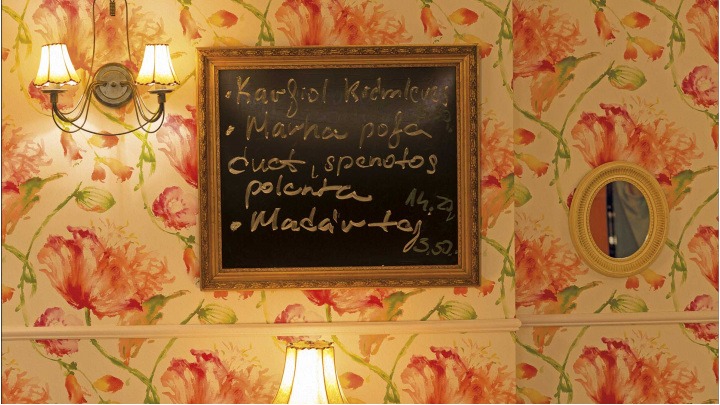 • Karfiol krémleves
• Marha pofa
duet, spenótos
polenta
14,
• Madártej
3,50.